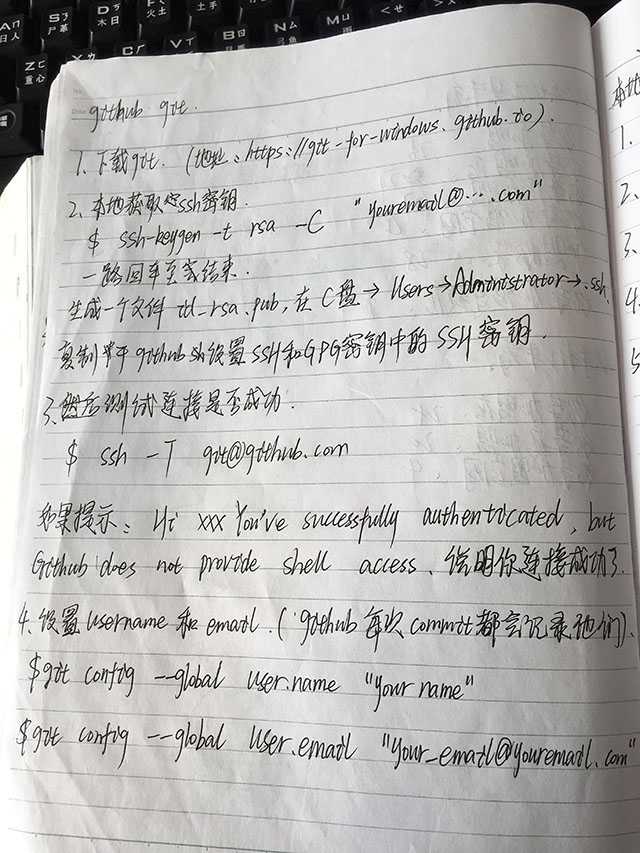 github git.
1. 下载git. (地址: https://git-for-windows.github.io).
2. 本地获取ssh密钥.
$ ssh-keygen -t rsa -C "youremail@....com"
一路回车至结束.
生成一个文件 id_rsa.pub, 在C盘→Users→Administrator→.ssh.
复制 于github 设置SSH和GPG密钥中的SSH密钥.
3. 然后测试连接是否成功.
$ ssh -T git@github.com
如果提示: Hi xxx You've successfully authenticated, but
Github does not provide shell access. 说明你连接成功了.
4. 设置username 和 email. (github 每次 commit都会记录他们).
$git config --global user.name "your name"
$git config --global user.email "your_email@youremail.com"
本地
1.
2.
3.
4.
5